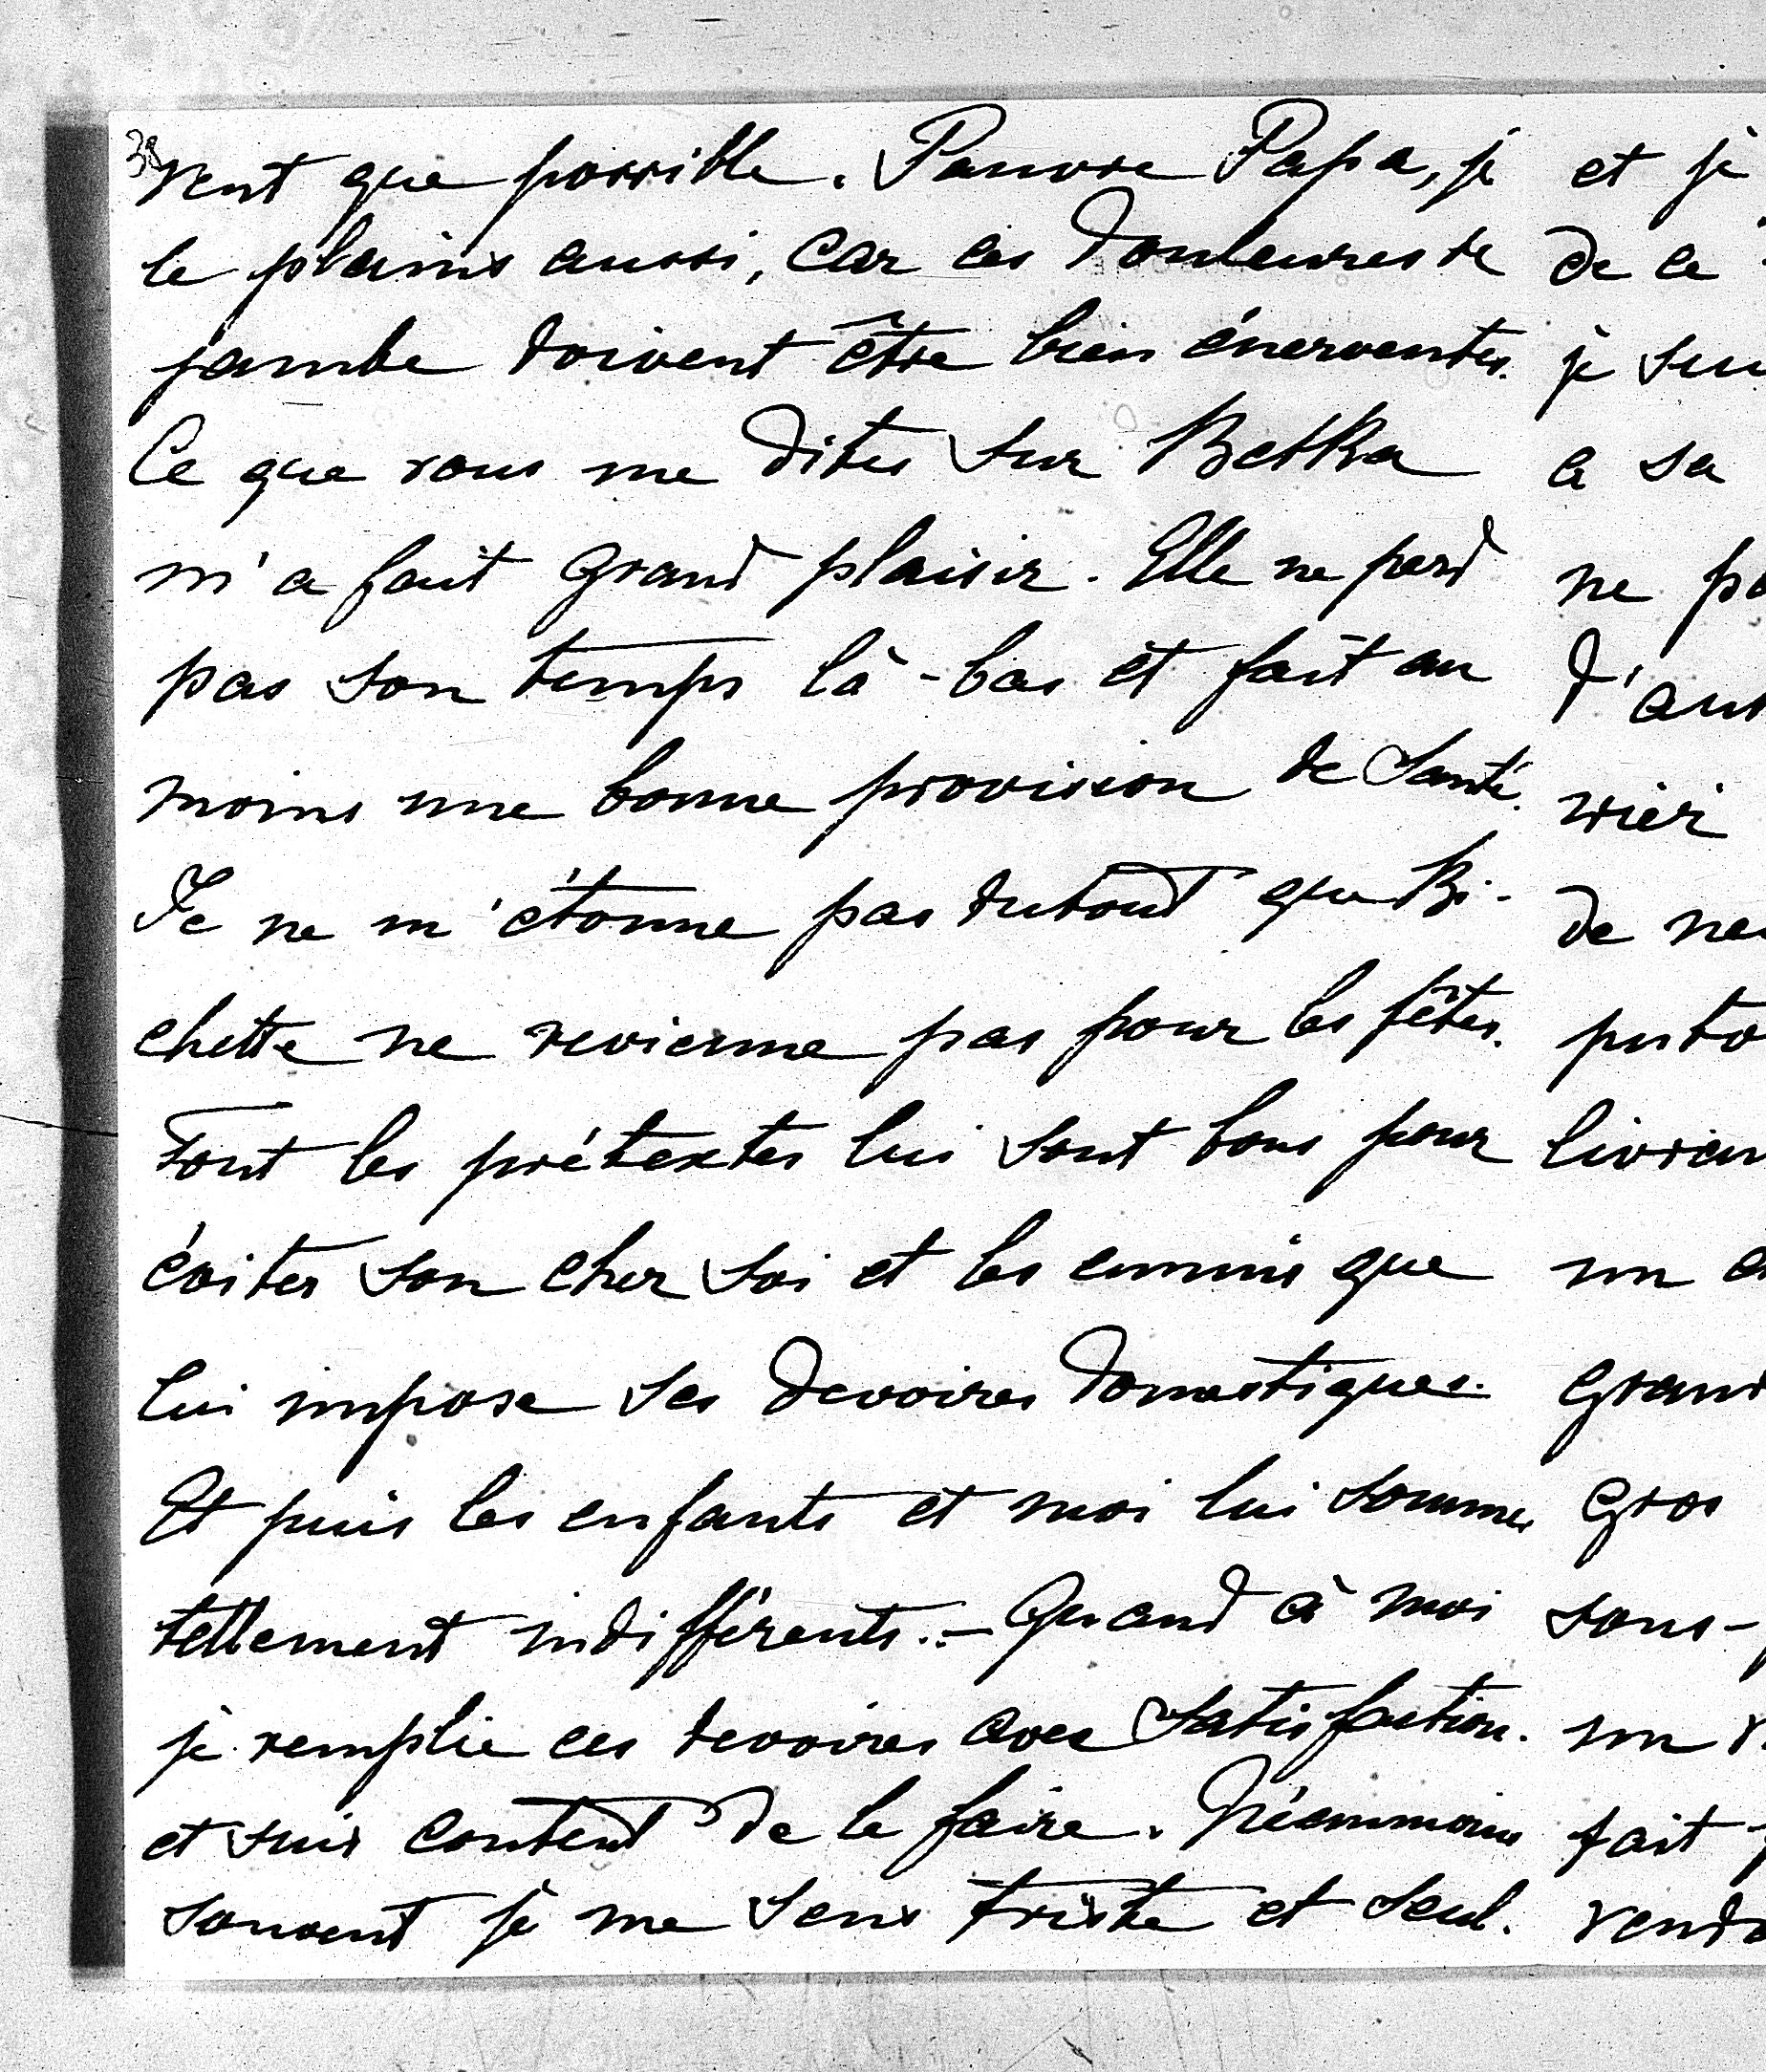 38
vent que possible. Pauvre Papa, je
le plains aussi, car ces douleures de
jambe doivent être bien énerventes.
Ce que vous me dites sur Betka
m'a fait grand plaisir. Elle ne perd
pas son temps là-bas et fait au
moins une bonne provision de santé.
Je ne m'étonne pas dutout que Bi-
chette ne revienne pas pour les fêtes.
Tout les prétextes lui sont bons pour
éviter son cher soi et les ennuis que
lui impose ses devoires domestiques.
Et puis les enfants et moi lui sommes
tellement indifférents. – Quand à moi
je remplie ces devoires avec satisfaction.
et suis content de le faire. Néammoins
souvent je me sens triste et seul.
et je
de ce
je sui
a sa
ne pa
d'aut
vier
de ne
puto
livrien
un
grand
gros
sous-
un
fait
vendo